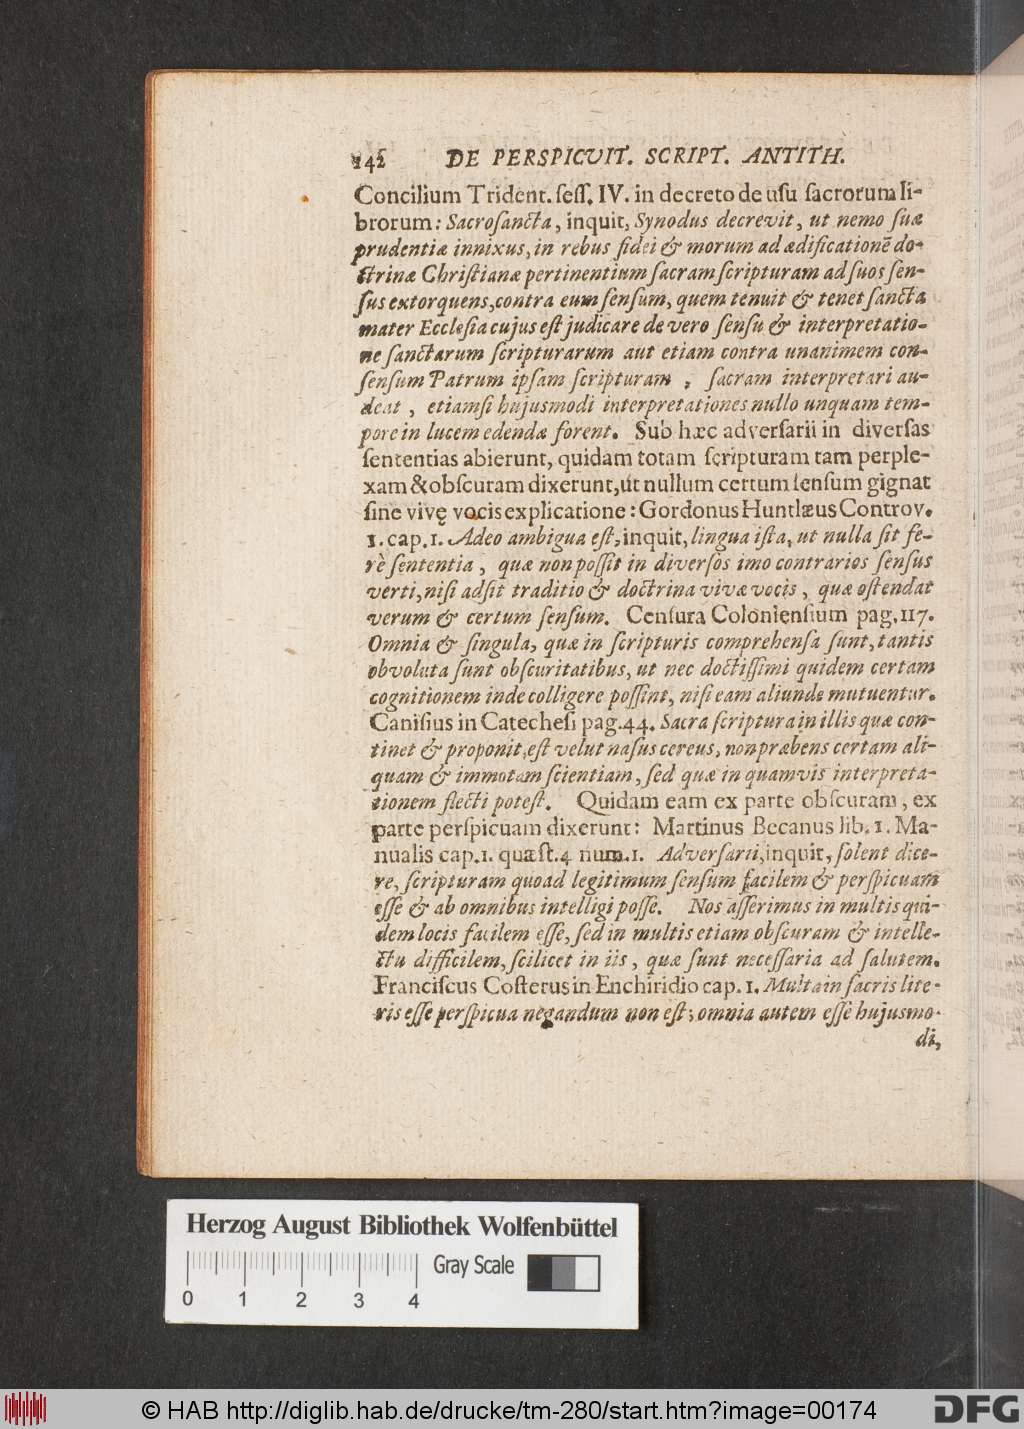 142 DE PERSPICVIT. SCRIPT. ANTITH.
Concilium Trident. seſſ. IV. in decreto de uſu ſacrorum li-
brorum: Sacroſancta, inquit, Synodus decrevit, ut nemo ſuæ
prudentiæ innixus, in rebus fidei & morum ad ædificationē do-
ctrinæ Chriſtianæ pertinentium ſacram ſcripturam ad ſuos ſen-
ſus extorquens, contra eum ſenſum, quem tenuit & tenet ſancta
mater Eccleſia cujus eſt judicare de vero ſenſu & interpretatio-
ne ſanctarum ſcripturarum aut etiam contra unanimem con-
ſenſum Patrum ipſam ſcripturam, ſacram interpretari au-
deat, etiamſi hujusmodi interpretationes nullo unquam tem-
pore in lucem edendæ forent. Sub hæc adverſarii in diverſas
ſententias abierunt, quidam totam ſcripturam tam perple-
xam & obſcuram dixerunt, ut nullum certum ſenſum gignat
ſine vivę vocis explicatione: Gordonus Huntlæus Controv.
1. cap. 1. Adeo ambigua eſt, inquit, lingua iſta, ut nulla ſit fe-
rè ſententia, quæ non poſſit in diverſos imo contrarios ſenſus
verti, niſi adſit traditio & doctrina vivæ vocis, quæ oſtendat
verum & certum ſenſum. Cenſura Colonienſium pag. 117.
Omnia & ſingula, quæ in ſcripturis comprehenſa ſunt, tantis
obvoluta ſunt obſcuritatibus, ut nec doctiſſimi quidem certam
cognitionem inde colligere poſſint, niſi eam aliunde mutuentur.
Caniſius in Catecheſi pag. 44. Sacra ſcriptura in illis quæ con-
tinet & proponit, eſt velut naſus cereus, non præbens certam ali-
quam & immotam ſcientiam, ſed quæ in quamvis interpreta-
tionem flecti poteſt. Quidam eam ex parte obſcuram, ex
parte perſpicuam dixerunt: Martinus Becanus lib. 1. Ma-
nualis cap. 1. quæſt. 4 num. 1. Adverſarii, inquit, ſolent dice-
re, ſcripturam quoad legitimum ſenſum facilem & perſpicuam
eſſe & ab omnibus intelligi poſſe. Nos aſſerimus in multis qui-
dem locis facilem eſſe, ſed in multis etiam obſcuram & intelle-
ctu difficilem, ſcilicet in iis, quæ ſunt neceſſaria ad ſalutem.
Franciſcus Coſterus in Enchiridio cap. 1. Multa in ſacris lite-
ris eſſe perſpicua negandum non eſt; omnia autem eſſe hujusmo-
di,
Herzog August Bibliothek Wolfenbüttel
Gray Scale
0 1 2 3 4
© HAB http://diglib.hab.de/drucke/tm-280/start.htm?image=00174
DFG